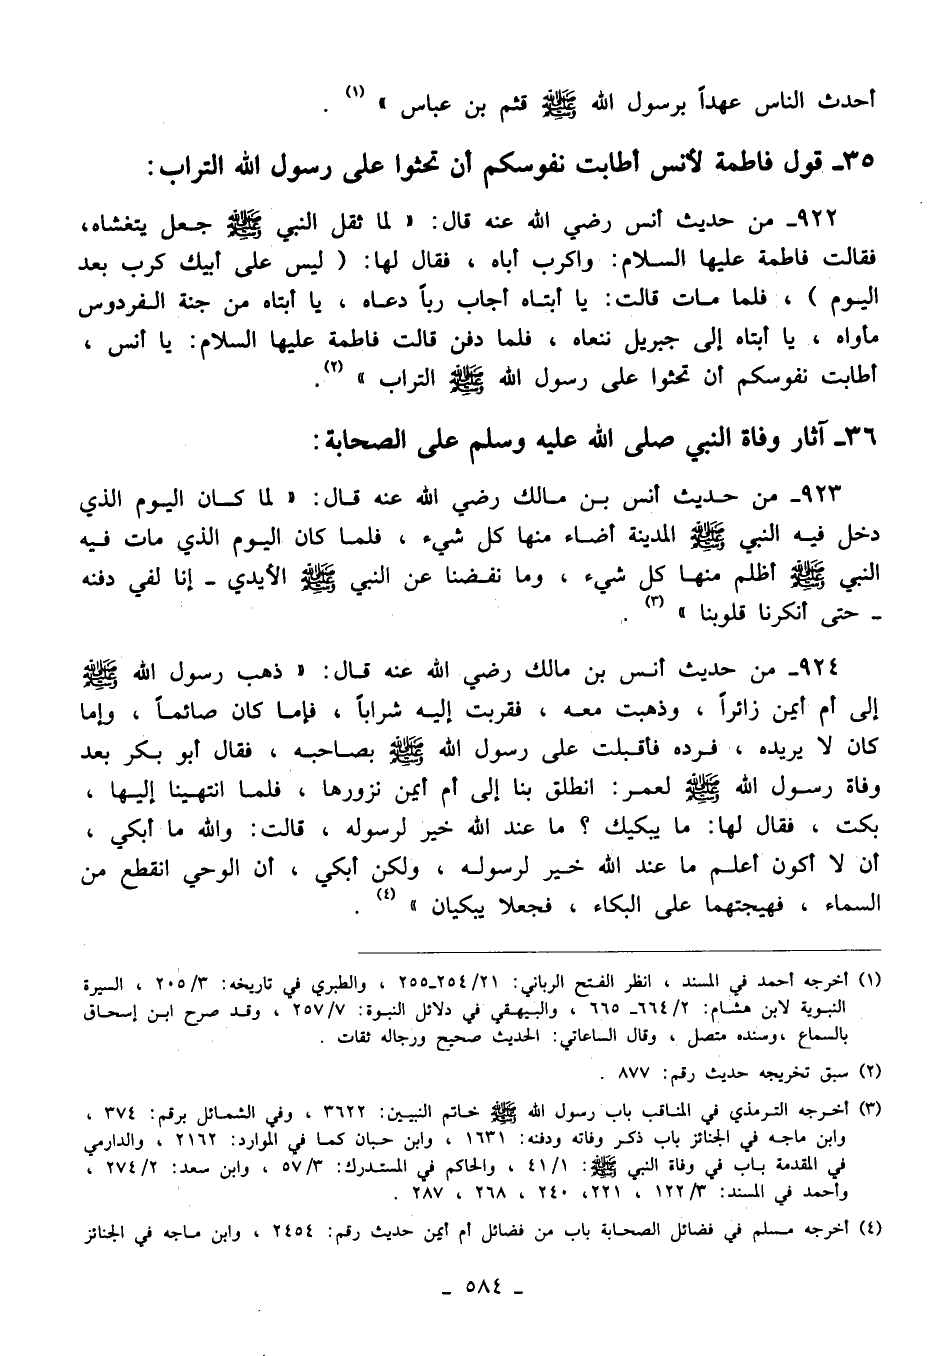 أحدث الناس عهداً برسول الله ﷺ قثم بن عباس » (١) .
٣٥ـ قول فاطمة لأنس أطابت نفوسكم أن تحثوا على رسول الله التراب:
٩٢٢ـ من حديث أنس رضي الله عنه قال: « لما ثقل النبي ﷺ جعل يتغشاه،
فقالت فاطمة عليها السلام: واكرب أباه ، فقال لها: ( ليس على أبيك كرب بعد
اليوم ) ، فلما مات قالت: يا أبتاه أجاب رباً دعاه ، يا أبتاه من جنة الفردوس
مأواه ، يا أبتاه إلى جبريل ننعاه ، فلما دفن قالت فاطمة عليها السلام: يا أنس ،
أطابت نفوسكم أن تحثوا على رسول الله ﷺ التراب » (٢).
٣٦ـ آثار وفاة النبي صلى الله عليه وسلم على الصحابة:
٩٢٣ـ من حديث أنس بن مالك رضي الله عنه قال: « لما كان اليوم الذي
دخل فيه النبي ﷺ المدينة أضاء منها كل شيء ، فلما كان اليوم الذي مات فيه
النبي ﷺ أظلم منها كل شيء ، وما نفضنا عن النبي ﷺ الأيدي ـ إنا لفي دفنه
ـ حتى أنكرنا قلوبنا » (٣) .
٩٢٤ـ من حديث أنس بن مالك رضي الله عنه قال: « ذهب رسول الله ﷺ
إلى أم أيمن زائراً ، وذهبت معه ، فقربت إليه شراباً ، فإما كان صائماً ، وإما
كان لا يريده ، فرده فأقبلت على رسول الله ﷺ بصاحبه ، فقال أبو بكر بعد
وفاة رسول الله ﷺ لعمر: انطلق بنا إلى أم أيمن نزورها ، فلما انتهينا إليها ،
بكت ، فقال لها: ما يبكيك ؟ ما عند الله خير لرسوله ، قالت: والله ما أبكي ،
أن لا أكون أعلم ما عند الله خير لرسوله ، ولكن أبكي ، أن الوحي انقطع من
السماء ، فهيجتهما على البكاء ، فجعلا يبكيان » (٤) .
(١) أخرجه أحمد في المسند ، انظر الفتح الرباني: ٢١/ ٢٥٤ـ٢٥٥ ، والطبري في تاريخه: ٣/ ٢٠٥ ، السيرة
النبوية لابن هشام: ٢/ ٦٦٤ـ ٦٦٥ ، والبيهقي في دلائل النبوة: ٧/ ٢٥٧ ، وقد صرح ابن إسحاق
بالسماع ،وسنده متصل ، وقال الساعاتي: الحديث صحيح ورجاله ثقات .
(٢) سبق تخريجه حديث رقم: ٨٧٧ .
(٣) أخرجه الترمذي في المناقب باب رسول الله ﷺ خاتم النبيين: ٣٦٢٢ ، وفي الشمائل برقم: ٣٧٤ ،
وابن ماجه في الجنائز باب ذكر وفاته ودفنه: ١٦٣١ ، وابن حبان كما في الموارد: ٢١٦٢ ، والدارمي
في المقدمة باب في وفاة النبي ﷺ: ١/ ٤١ ، والحاكم في المستدرك: ٣/ ٥٧ ، وابن سعد: ٢/ ٢٧٤ ،
وأحمد في المسند: ٣/ ١٢٢ ، ٢٢١، ٢٤٠ ، ٢٦٨ ، ٢٨٧ .
(٤) أخرجه مسلم في فضائل الصحابة باب من فضائل أم أيمن حديث رقم: ٢٤٥٤ ، وابن ماجه في الجنائز
ـ ٥٨٤ ـ